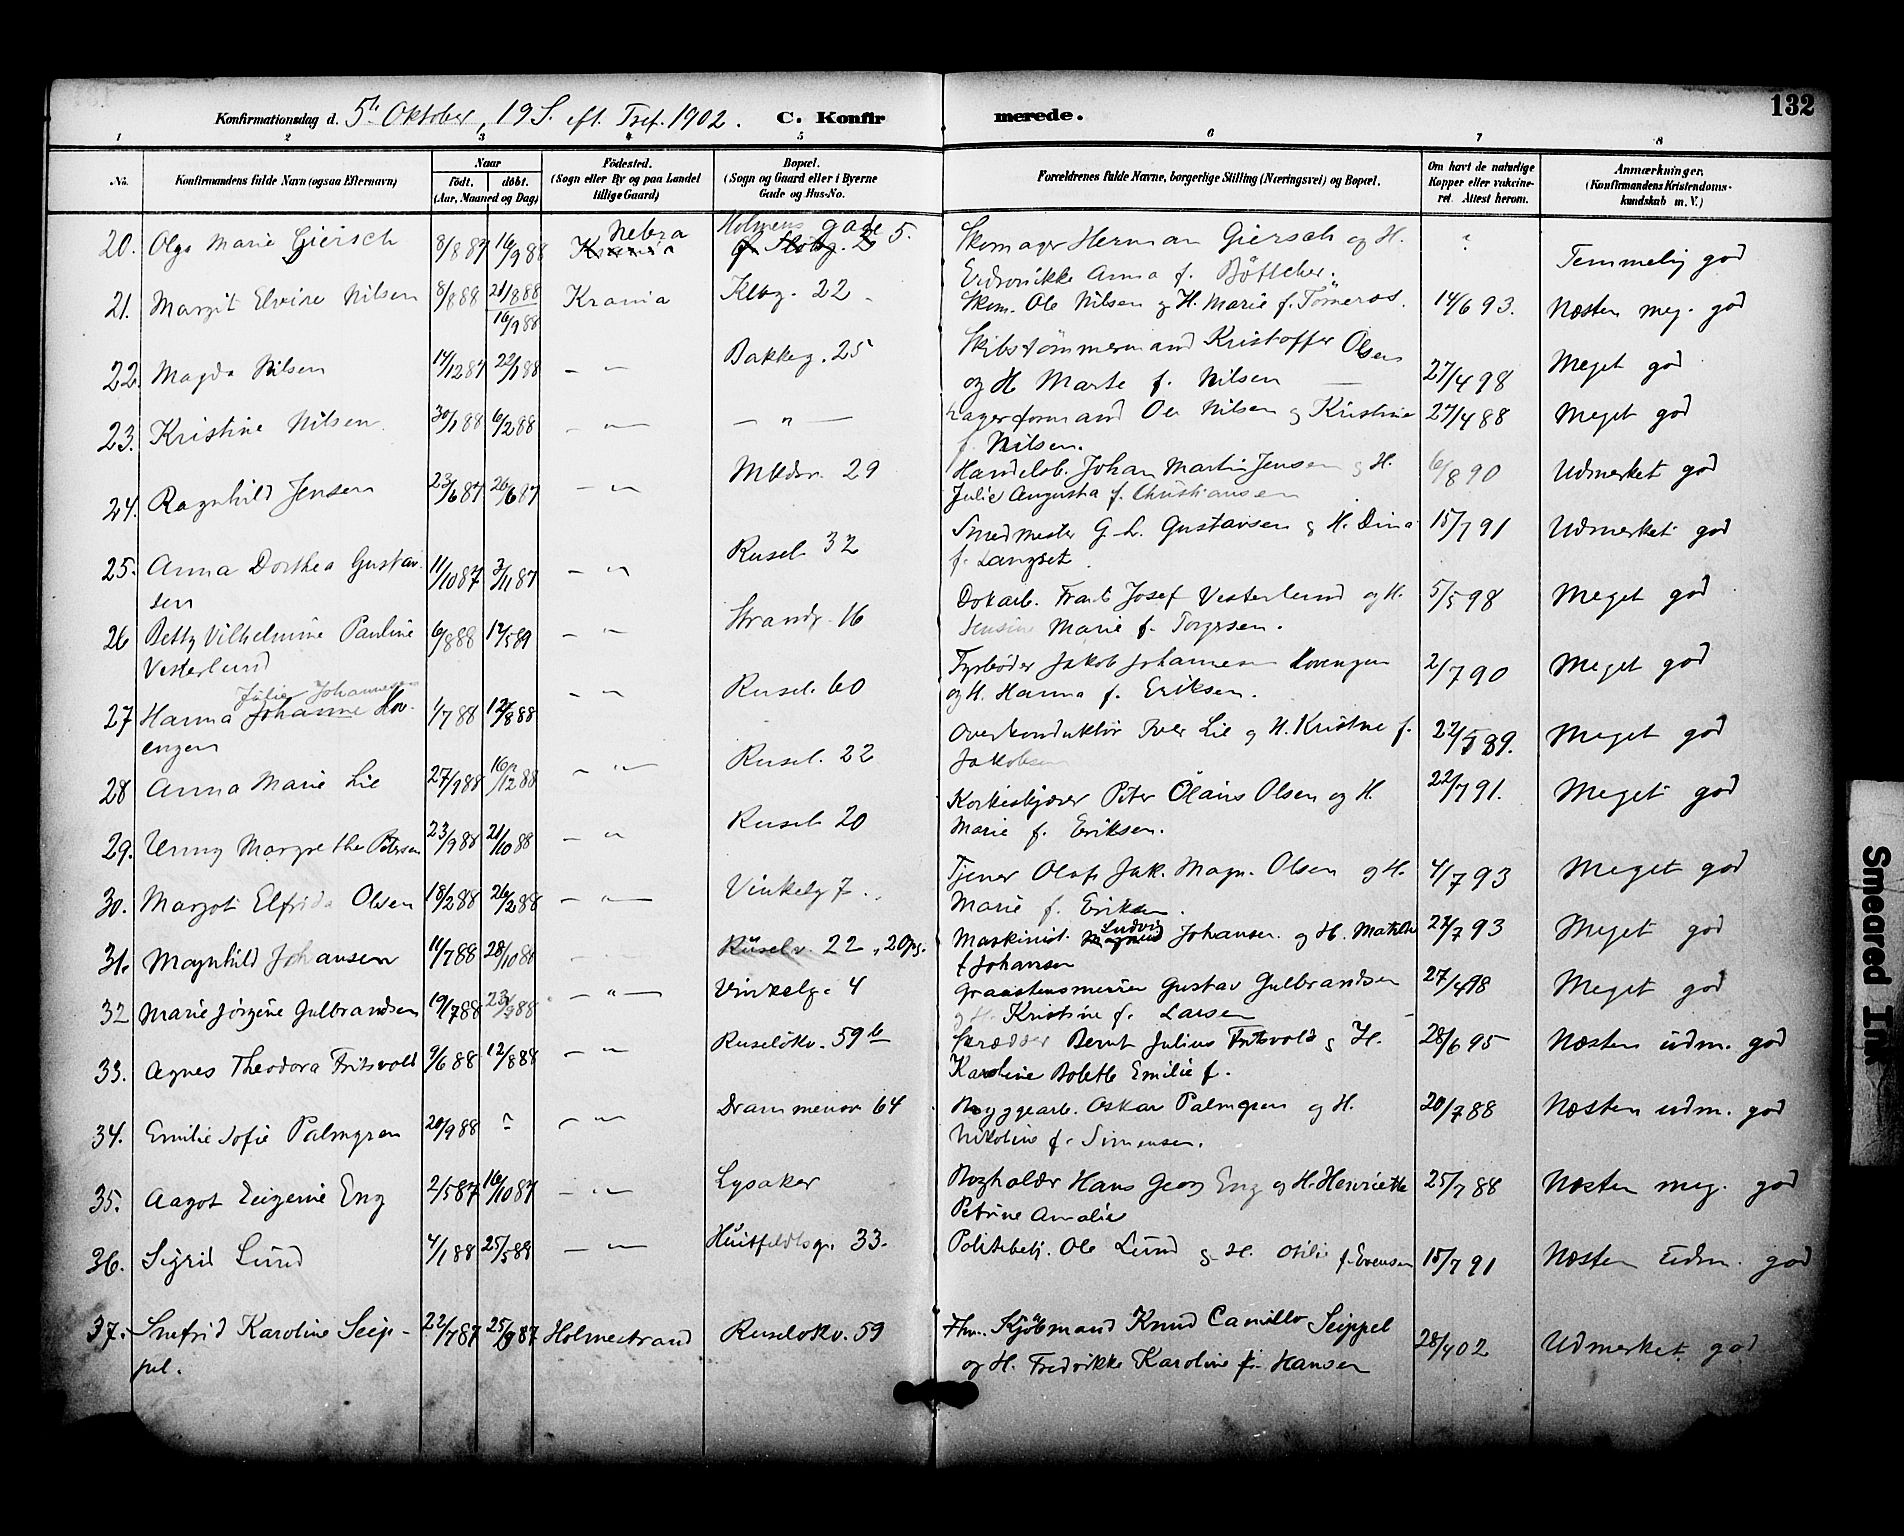 132
Konfirmationsdag d. 5te Oktober, 19 S. eft. Tref. 1902. C. Konfirmerede.
1 2 3 4 5 6 7 8
No. Konfirmandens fulde Navn (ogsaa Efternavn) Naar født, døbt. (Aar, Maaned og Dag) Födested. (Sogn eller By og paa Landet tillige Gaard) Bopæl. (Sogn og Gaard eller i Byerne Gade og Hus-No. Forældrenes fulde Navne, borgerlige Stilling (Næringsvei) og Bopæl. Om havt de naturlige Kopper eller vakcineret. Attest herom. Anmærkninger. (Konfirmandens Kristendomskundskab m. V.)
20. Olga Marie Giersch 8/8 87 16/9 88 Nebra Holmens gade 5. Skomager Herman Giersch og H. ? Temmelig god
Anna f. Böttcher.
21. Margit Elvine Nilsen 8/8 88 21/8 88 Krania Klbg. 22 Skom. Ole Nilsen og H. Marie f. Tömeraas. 14/6 93. Næsten meg. god
16/9 88
22 Magda Nilsen 14/12 87 22/1 88 — " — Bakkeg. 25 Skibstömmermand Kristoffer Olsen
og H Marte f. Nilsen 27/4 98 Meget god
23. Kristine Nilsen 30/1 88 6/2 88 — " — — " — Lagerformand Ole Nilsen og Kristine 27/4 88 Meget god
f. Nilsen.
24. Ragnhild Jensen 23/6 87 26/6 87 — " — Mkdsv. 29 Handelsb. Johan Martin Jensen og H. 6/8 90 Udmerket god
Julie Augusta f. Christiansen
25. Anna Dorthea Gustav- 11/10 87 3/11 87 — " — Rusel. 32 Smedmester G. L. Gustavsen og H. Dina 15/7 91 Udmerket god
sen f. Langset.
26 Betty Vilhelmine Pauline 6/8 88 12/5 89 — " — Strandg. 16 Dokarb. Frants Josef Vesterlund og H. 5/5 98 Meget god
Vesterlund Jensine Marie f. Torgersen.
27 Hanna Julie Johannesen Johanne Hov- 1/7 88 12/8 88 — " — Rusel. 60 Fyrböder Jakob Johannesen Hovengen 2/7 90 Meget god
engen og H. Hanna f. Eriksen.
28 Anna Marie Lie 27/9 88 16/12 88 — " — Rusel. 22 Overkonduktör Iver Lie og H. Kristine f. 22/5 89. Meget god
Jakobsen
29. Unny Margrethe Petersen 23/9 88 21/10 88 — " — Rusel. 20 Korkeskjærer Peter Olaus Olsen og H. 22/7 91. Meget god
Marie f. Eriksen.
30. Margot Elfrida Olsen 18/2 88 26/2 88 — " — Vinkelg 7. Tjener Olaf Jak. Magn. Olsen og H. 4/7 93 Meget god
Marie f. Eriksen.
31. Magnhild Johansen 11/7 88 28/10 88 Ruselv. 22, 20 pg. Maskinist Ludvig Johansen og H. Matilde 24/7 93 Meget god
f Johansen
32 Marie Jörgine Gulbrandsen 19/7 88 23/9 88 — " — Vinkelg. 4 Graastensmurer Gustav Gulbrandsen 27/4 98 Meget god
og H. Kristine f. Larsen
33. Agnes Theodora Fritsvold 9/6 88 12/8 88 — " — Ruselökv. 59 b Skrædder Bernt Julius Fritsvold og H. 28/6 95 Næsten udm. god
Karoline Bolette Emilie f.
34. Emilie Sofie Palmgren 20/9 88 ? — " — Drammensv 64 Byggearb. Oskar Palmgren og H. 20/7 88 Næsten udm. god
Nikoline f. Simensen.
35. Aagot Eugenie Eng 2/5 87 16/10 87 — " — Lysaker Bogholder Hans Georg Eng og H. Henriette 25/7 88 Næsten meg. god
Petrine Amalie
36. Sigrid Lund 4/1 88 25/5 88 — " — Huitfeldtsg. 33. Politibetj. Ole Lund og H. Otilie f. Evensen 15/7 91 Næsten udm. god
37. Snefrid Karoline Seip- 22/7 87 25/9 87 Holmestrand Ruselökv. 59 Fhv. Kjöbmand Knud Camillo Seippel 28/4 02 Udmerket god
pel. og H. Fredrikke Karoline f. Hansen
Smeared Ink